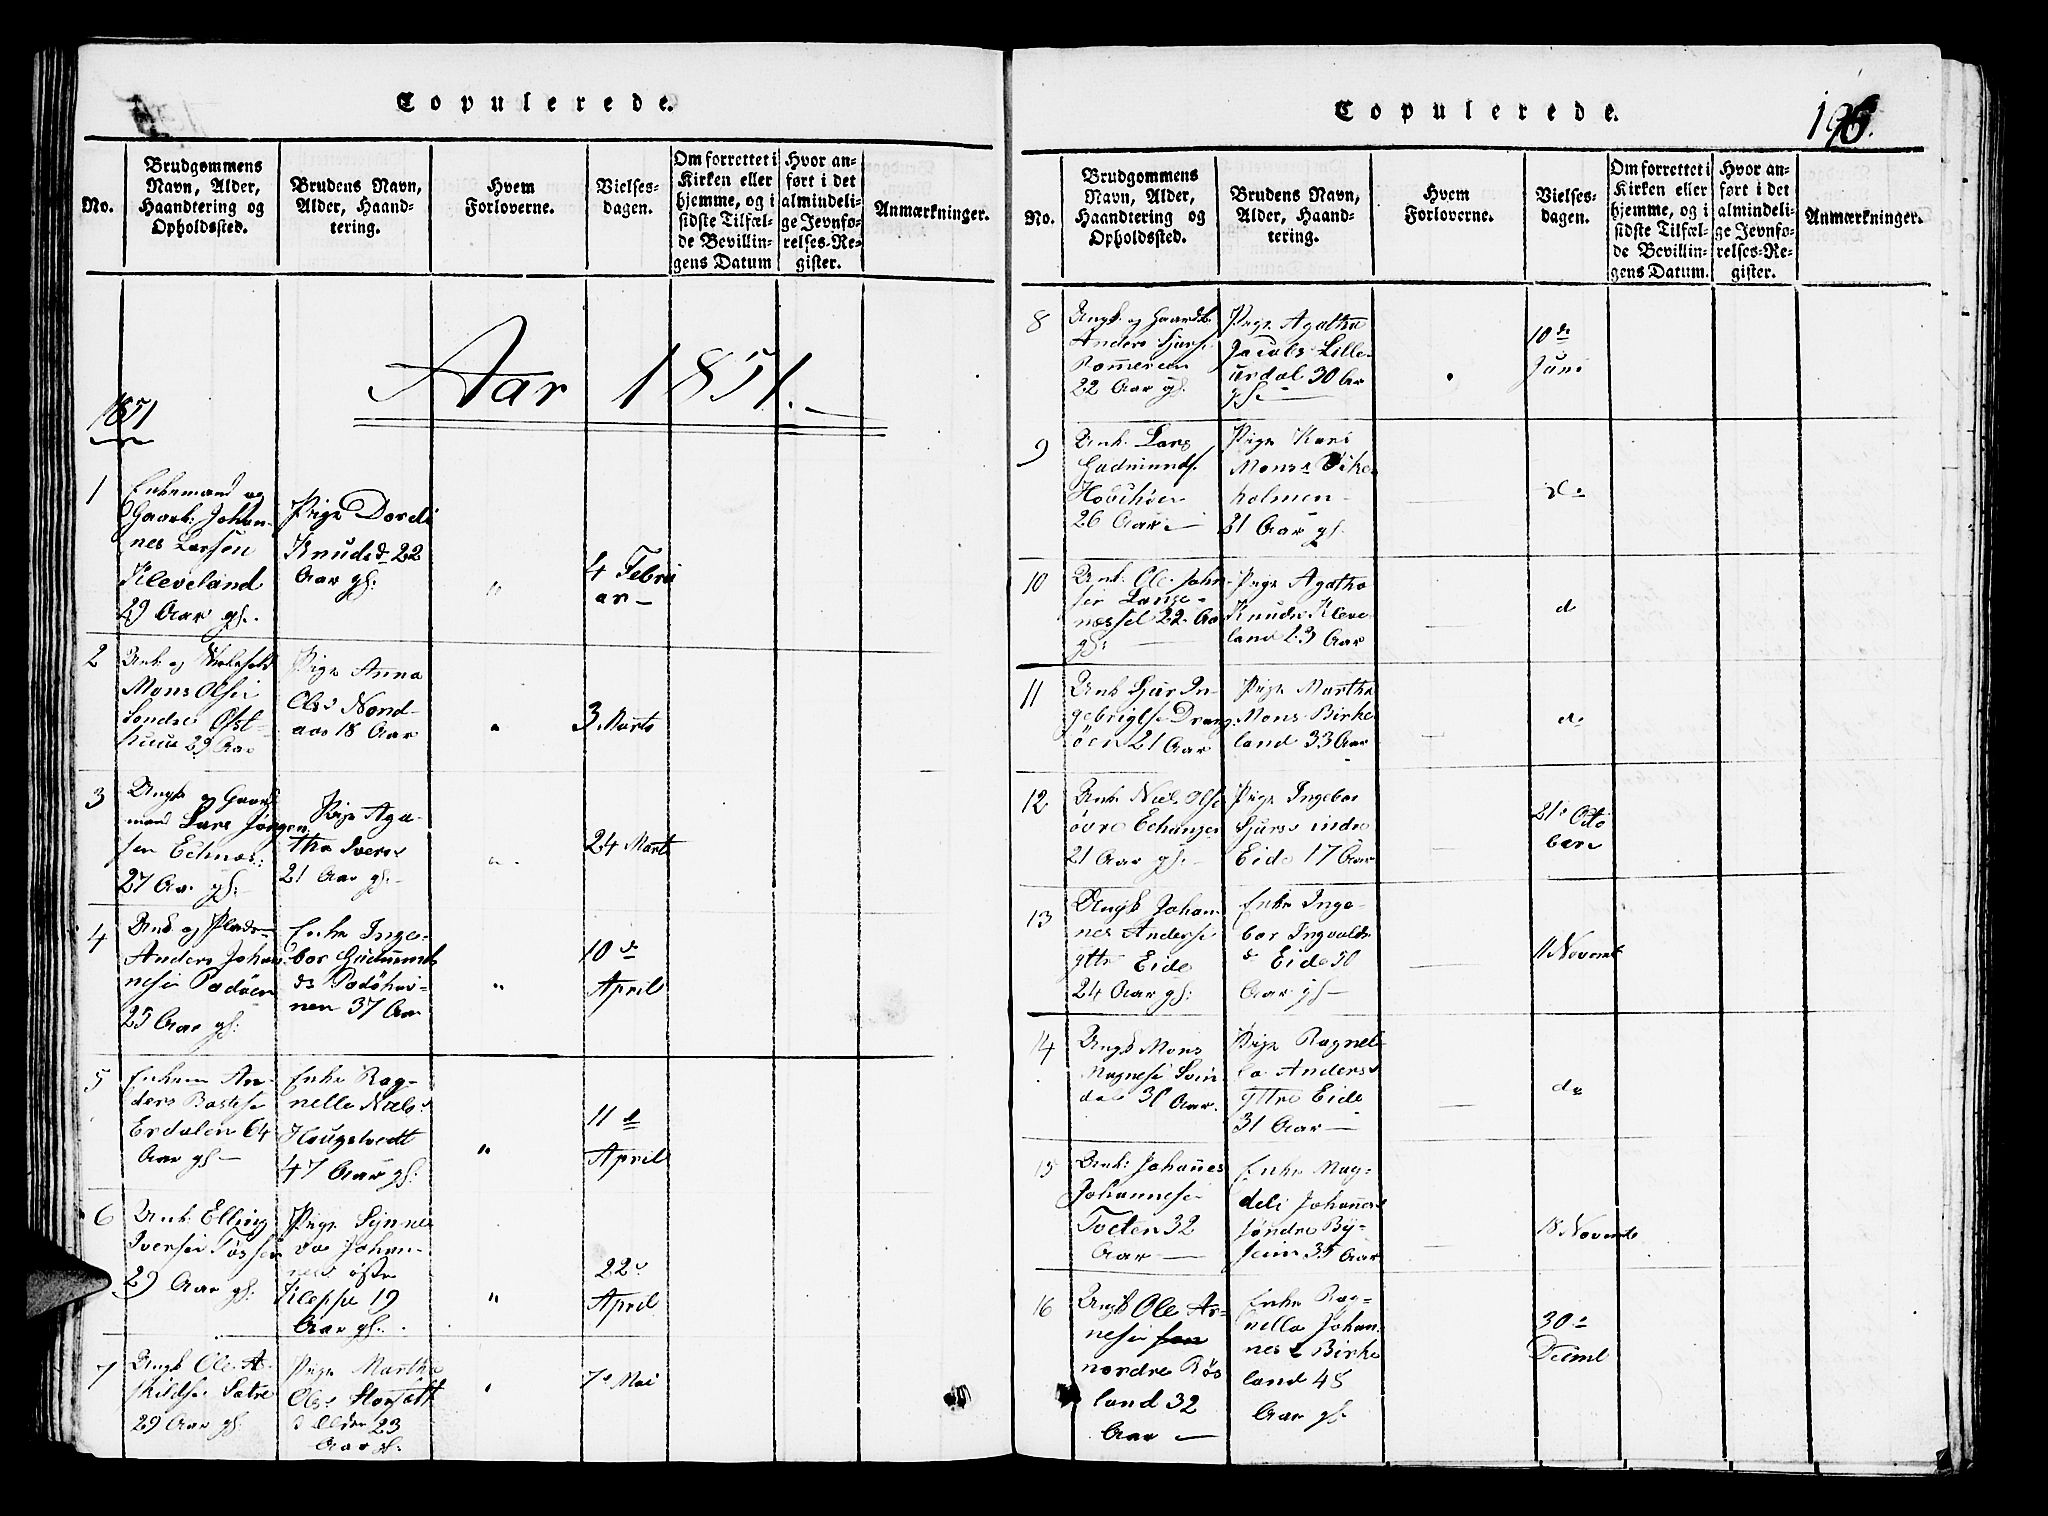 Copulerede.
No.
Brudgommens
Navn, Alder,
Haandtering og
Opholdssted.
Brudens Navn,
Alder, Haand-
tering.
Hvem
Forloverne.
Vielses-
dagen.
Om forrettet i
Kirken eller
hjemme, og i
sidste Tilfæl-
de Bevillin-
gens Datum
Hvor an-
ført i det
almindeli-
ge Jevnfø-
relses-Re-
gister.
Anmærkninger.
Aar 1851.
1851
1
Enkemand og
Gaarb: Johan-
nes Larsen
Kleveland
29 Aar gh.
Pige Dordi
Knudsd 22
Aar gh:
"
4 Febru
ar
2
Mons Olsen
Søndre Øst-
29 Aar
Pige Anna
Olsd Nord-
aas 18 Aar
"
3 Marts
3
Ungk og Gaard
mand Lars Jørgen
sen Eknæs:
27 Aar gh:
Pige Aga-
tha Iversd
21 Aar gh:
"
24 Marts
4
Ungk og Plads-
Anders Johan
nesen Padøen
25 Aar gh:
Enke Inge-
bor Gudmund
ds Padøhav-
nen 37 Aar
"
10de
April
5
Enkem An-
ders
Erdalen 64
Aar gh
Enke Rag-
nelle Nielsd
Haugstvedt
47 Aar gh:
"
11 d
April
6
Unk: Elling
Iversen
29 Aar gh:
Pige Synne-
va Johan-
nesd østre
Kleppe 19
Aar gh:
"
22d
April
7
Ungk Ole A-
skildsen Sætre
29 Aar gh:
Pige Martha
Olsd
23
Aar gh:
"
7d Mai
Copulerede.
196.
No.
Brudgommens
Navn, Alder,
Haandtering og
Opholdssted.
Brudens Navn,
Alder, Haand-
tering.
Hvem
Forloverne.
Vielses-
dagen.
Om forrettet i
Kirken eller
hjemme, og i
sidste Tilfæl-
de Bevillin-
gens Datum.
Hvor an-
ført i det
almindeli-
ge Jevnfø-
relses-Re-
gister.
Anmærkninger.
8
Ungk. og Gaardb.
Anders Sjurse
Romereen
22 Aar gh.
Pige Agatha
Jacobs Lille-
urdal 30 Ar
gh
10de
Juni
9
Unk. Lars
Gudmunds.
26 Aar
Pige Kari
Monsd Vike
holmen
31 Aar gh.
do
10
Unk: Ole John
sen Lange-
22 Aar
gh:
Pige Agatha
Knuds Kleve
land 23 Aar
d
11
Unk Sjur In-
gebrigtse Drang-
øen 21 Aar
Pige Martha
Mons Birke
land 33 Aar
do
12
Unk Niels Olse
øvre Echanger
21 Aar gh:
Pige Ingebor
Sjursd indre
Eide 17 Aar
21d Octo
ber
13
Ungk Johan
nes Anderse
yttre Eide
24 Aar gh:
Enke Inge-
bor Ingvalds
d Eide 50
Aar gh
11 Novemb
14
Ungk Mons
Magnese Svin
dal 30 Aar.
Pige Ragnel-
la Andersd
yttre Eide
31 Aar
do
15
Unk: Johannes
Johannesen
Tveten 32
Aar
Enke Mag-
deli Johannesd
søndre By-
sheim 35 Aar
18 Novemb
16
Ungk Ole Ar-
nesen
nordre Røs
land 32
Aar
Enke Rag-
nella Johan
nesd Birke
land 45
Aar gh.
30d
Decmb